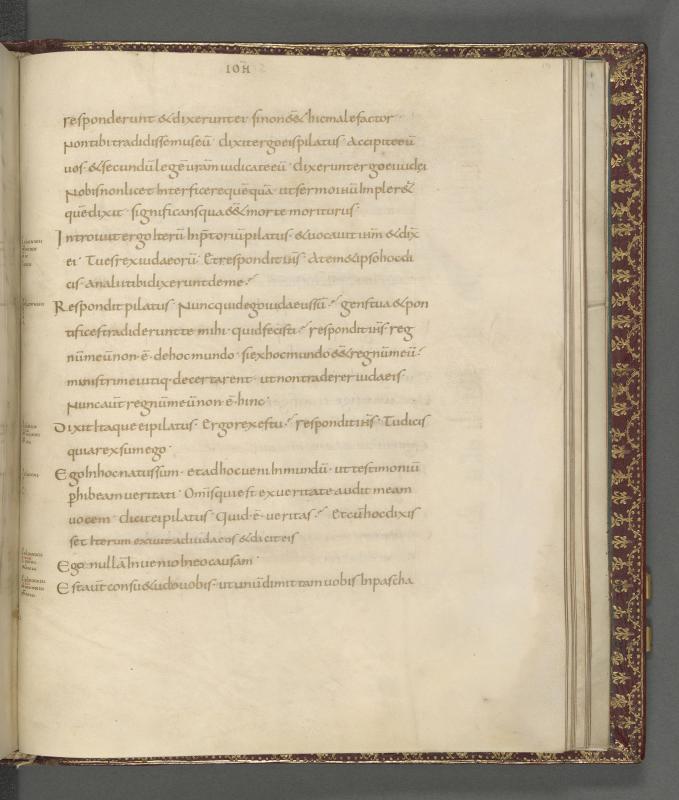 IOH̄
responderunt & dixerunt ei · si non ess& hic malefactor ·
Non tibi tradidissemus eū · dixit ergo eis pilatus · Accipite eū
uos · & secundū legē urām iudicate eū · dixerunt ergo ei iudei
Nobis non licet Interficere quēquā · ut sermo ihū Impler&
quē dixit · significans qua ess& morte moriturus ·
Introiuit ergo Iterū In p̄toriū pilatus · & uocauit ihm̄ & dix̄
ei · Tu es rex iudaeorū · Et respondit ihs̄ · A temetipso hoc di
cis · an alii tibi dixerunt de me ·
Respondit pilatus · Nunc quid ego iudaeus sū · gens tua & pon
tifices tradiderunt te mihi · quid fecisti · respondit ihs̄ · reg
nū meū non · ē · de hoc mundo · si ex hoc mundo ess& regnū meū ·
ministri mei utiq· decertarent · ut non traderer iudaeis ·
Nunc aūt regnū meū non · ē · hinc ·
Dixit Itaque ei pilatus · Ergo rex es tu · respondit ihs̄ · Tu dicis
quia rex sum ego ·
Ego In hoc natus sum · et ad hoc ueni In mundū · ut testimoniū
p̱hibeam ueritati · Omīs qui est ex ueritate audit meam
uocem · dicit ei pilatus · Quid · ē · ueritas · Et cū hoc dixis
set Iterum exiuit ad iudaeos & dicit eis
Ego nullā Inuenio In eo causam ·
Est aūt consu&udo uobis · ut unū dimittam uobis In pascha